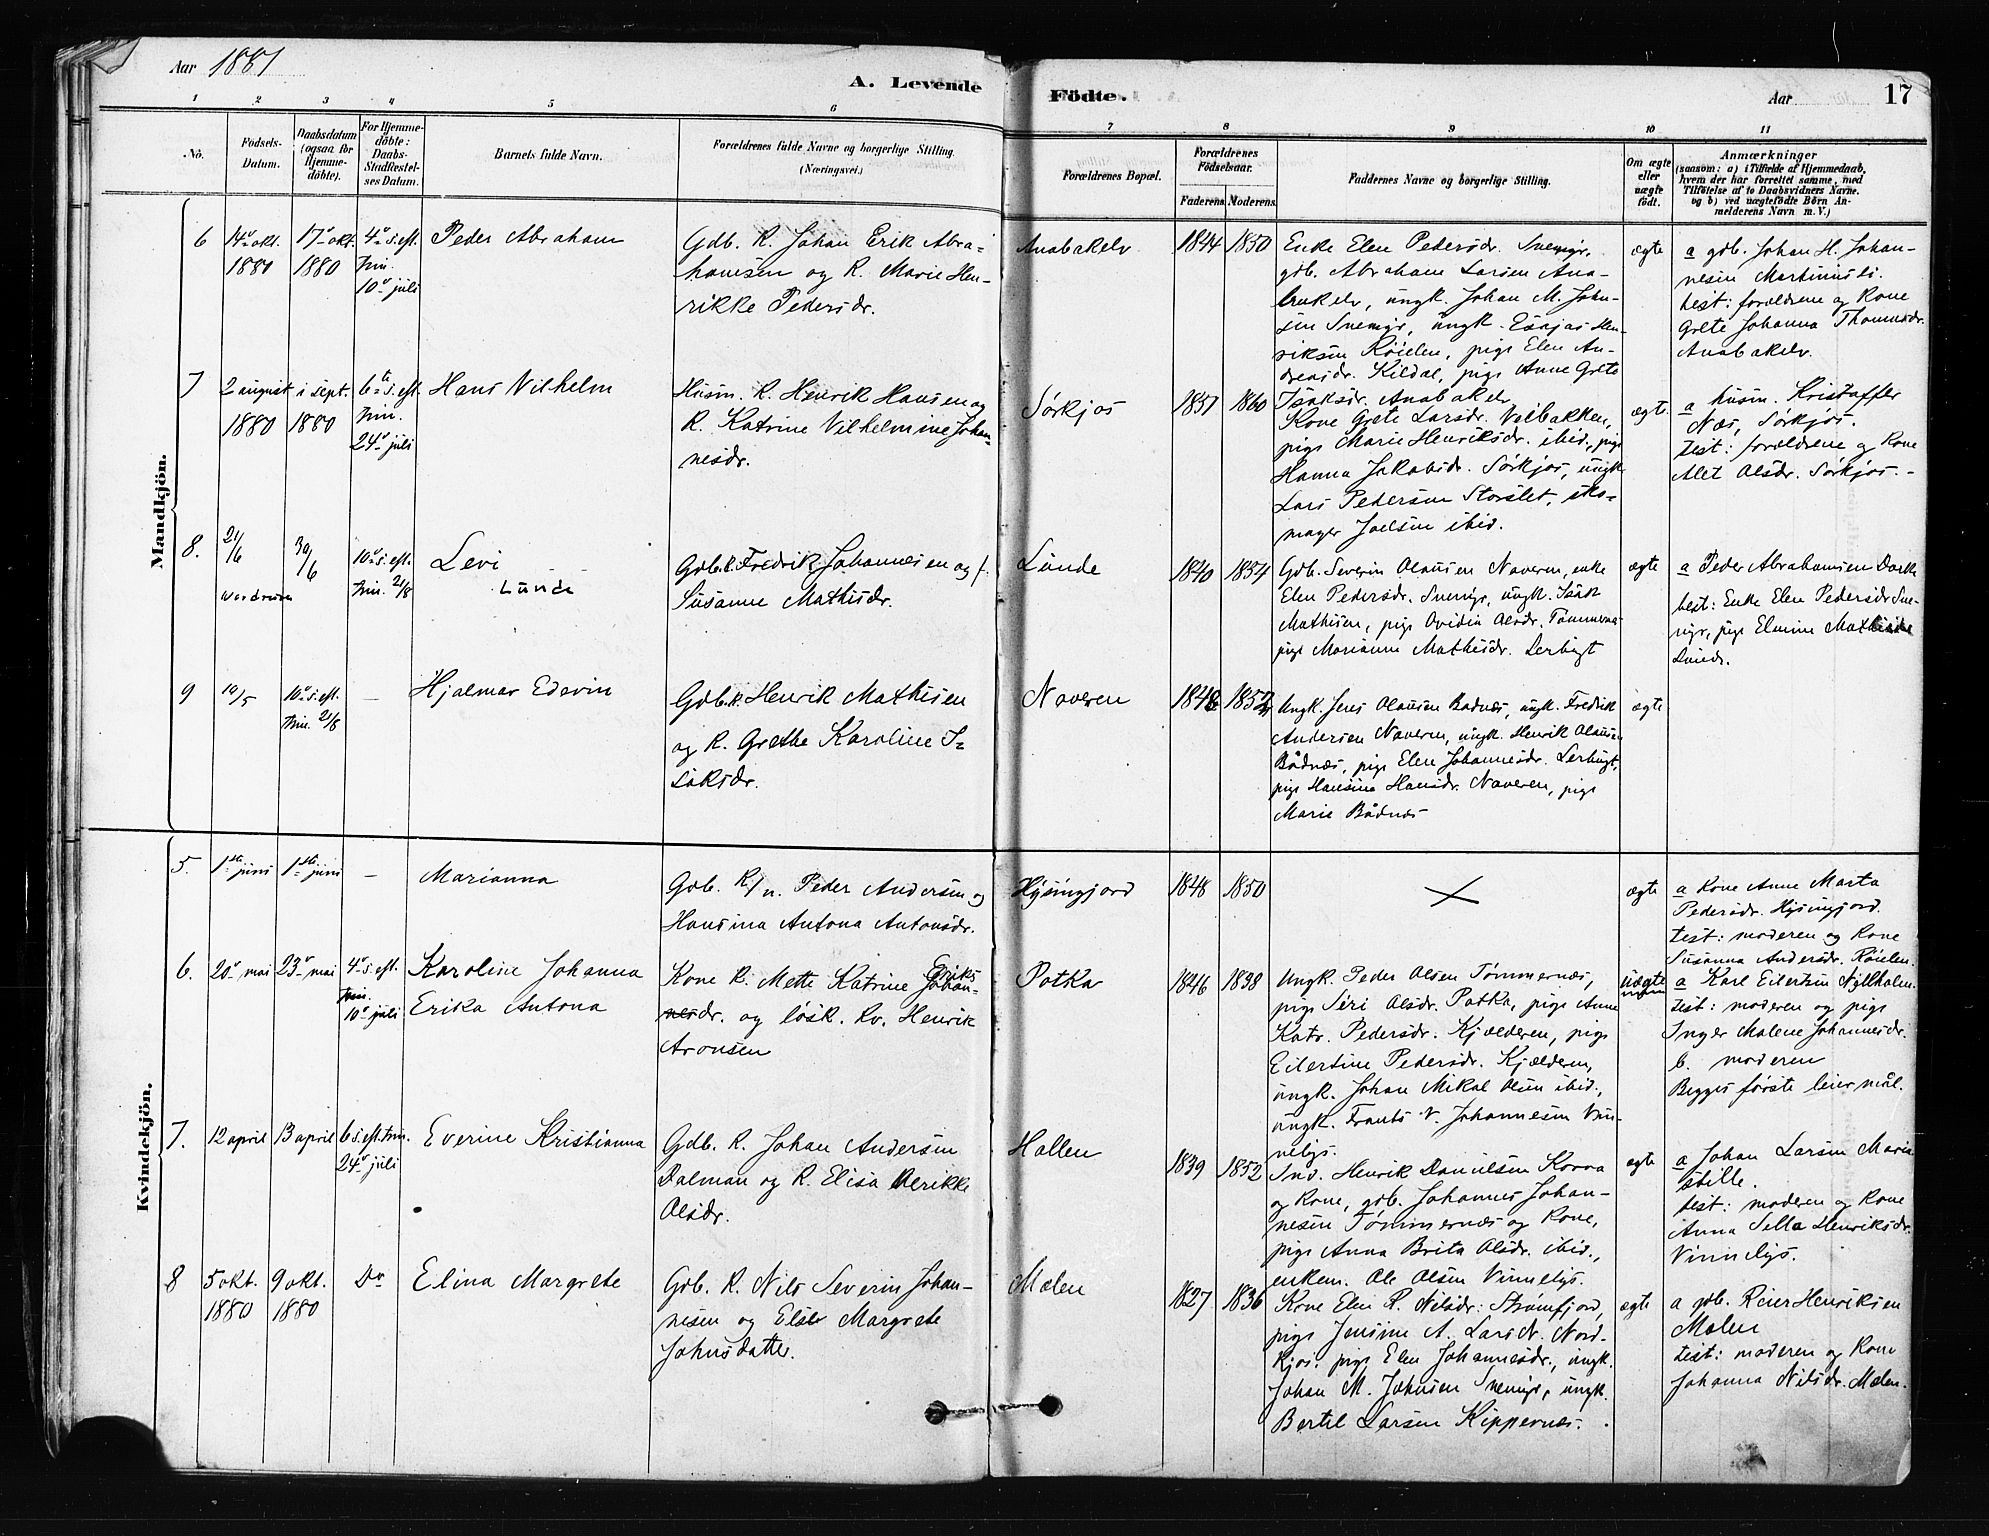 Aar 1881
A. Levende Födte.
Aar
17
1 2 3 4 5 6 7 8 9 10 11
No.
Födsels-Datum.
Daabsdatum (ogsaa for Hjemme-döbte).
For Hjemme-döbte: Daabs-Stadfæstel-ses Datum.
Barnets fulde Navn.
Forældrenes fulde Navne og borgerlige Stilling.
(Næringsvei.)
Forældrenes Bopæl.
Forældrenes Födselsaar.
Faderens. Moderens.
Faddernes Navne og borgerlige Stilling.
Om ægte eller uægte födt.
Anmærkninger
(saasom: a) i Tilfælde af Hjemmedaab,
hvem der har forrettet samme, med
Tilföielse af to Daabsvidners Navne,
og b) ved uægtefödte Börn An-
melderens Navn m. V.)
Mandkjön.
6
14de okt.
1880
17de okt.
1880
4de s. eft.
Trin.
10de juli
Peder Abraham
Gdb. K. Johan Erik Abra-
hamsen og K. Marie Hen-
rikke Pedersdr.
Anabakelv
1844 1850
Enke Elen Pedersdr. Snemyr,
gdb. Abraham Larsen Ana-
bakelv, ungk. Johan M. John-
sen Snemyr, ungk. Esajas Hen-
riksen Röielen, pige Elen An-
dersdr. Kildal, pige Anne Grete
Isaksdr. Anabakelv
ægte
a gdb. Johan H. Johan-
nesen Martinusli.
test: forældrene og Kone
Grete Johanna Thomasdr.
Anabakelv.
7
2 august
1880
i sept.
1880
6te s. eft.
Trin.
24de juli
Hans Vilhelm
Husm. K. Henrik Hansen og
K. Katrine Vilhelmine Johan-
nesdr.
Sörkjos
1857 1860
Kone Grete Larsdr. Volbakken,
pige Marie Henriksdr. ibid., pige
Hanna Jakobsdr. Sörkjos, ungk.
Lars Pedersen Storslet, sko-
mager Joelsen ibid.
ægte.
a husm. Kristoffer
Næs, Sörkjos.
test: forældrene og Kone
Alet Olsdr. Sörkjos.
8.
21/6
30/6
10de s. eft.
Trin. 21/8
Levi
Lunde
Gdb. K. Fredrik Johannesen og
Susanne Mathisdr.
Lunde
1840 1854
Gdb. Severin Olaussen Naveren, enke
Elen Pedersdr. Snemyr, ungk. Isak
Mathisen, pige Ovidia Olsdr. Tömmernæs
pige Marianne Mathisdr. Lerbugt
ægte
a Peder Abrahamsen
test: Enke Elen Pedersdr Sne-
myr, pige Elmine Mathisdr
Lunde.
9
10/5
10de s. eft.
Trin. 21/8
—
Hjalmar Edevin
Gdb. K. Henrik Mathisen
og K. Grethe Karoline I-
saksdr.
Naveren
1848
Ungk. Jens Olausen Badnæs, ungk. Fredrik
Andersen Naveren, ungk. Henrik Olausen
Bådnæs, pige Elen Johannesdr. Lerbugt,
pige Hansine Hansdr. Naveren, pige
Marie Bådnæs
ægte
Kvindekjön.
5.
1ste juni
1ste juni
—
Marianna
Gdb. K/n. Peder Andersen og
Hansina Antona Antonsdr.
Hysingjord
1848 1850
ægte
a Kone Anne Marta
Pedersdr. Hysingjord.
test: moderen og Kone
Susanna Andersdr. Röielen.
6.
20de mai
23de mai
4de s. eft.
Trin.
10de juli
Karoline Johanna
Erika Antona
Kone K. Mette Katrine Eriks
Johan-
nesdr. og lösk. Kv. Henrik
Aronsen
Potka
1846 1838
Ungk. Peder Olsen Tömmernæs,
pige Siri Olsdr. Potka, pige Anne
Katr. Pedersdr. Kjælderen, pige
Eilertine Pedersdr. Kjælderen,
ungk. Johan Mikal Olsen ibid.,
ungk. Frants V. Johannesen Vin-
nelys.
uægte
a Karl Eilertsen Nyllholm
test: moderen og pige
Inger Malene Johannesdr.
b. moderen
Begges förste leiermål.
7.
12 april
13 april
6 s. eft. trin.
24de juli
Everine Kristianna
Gdb. K. Johan Andersen
Dalman og K. Elisa Ulrikke
Olsdr.
Hallen
1839 1852
Ind. Henrik Danielsen Korva
og Kone, gdb. Johannes Johan-
nesen Tömmernæs og Kone,
pige Anna Brita Olsdr. ibid.,
enkem. Ole Olsen Vinnelys.
ægte
a Johan Larsen Maria
stille.
test: moderen og Kone
Anna Sella Henriksdr.
Vinnelys.
8
5 okt.
1880
9 okt.
1880
Do
Elina Margrete
Gdb. K. Nils Severin Johan-
nesen og Else Margrete
Johnsdatter.
Molen
1827 1836
Kone Elen K. Nilsdr. Strömfjord,
pige Jensine A. Larsdr. Nord-
kjos, pige Elen Johannesdr., ungk.
Johan M. Johnsen Snemyr, ungk.
Bertel Larsen Kippernæs.
ægte
a gdb. Reier Henriksen
Molen
test: moderen og Kone
Johanna Nilsdr. Molen.